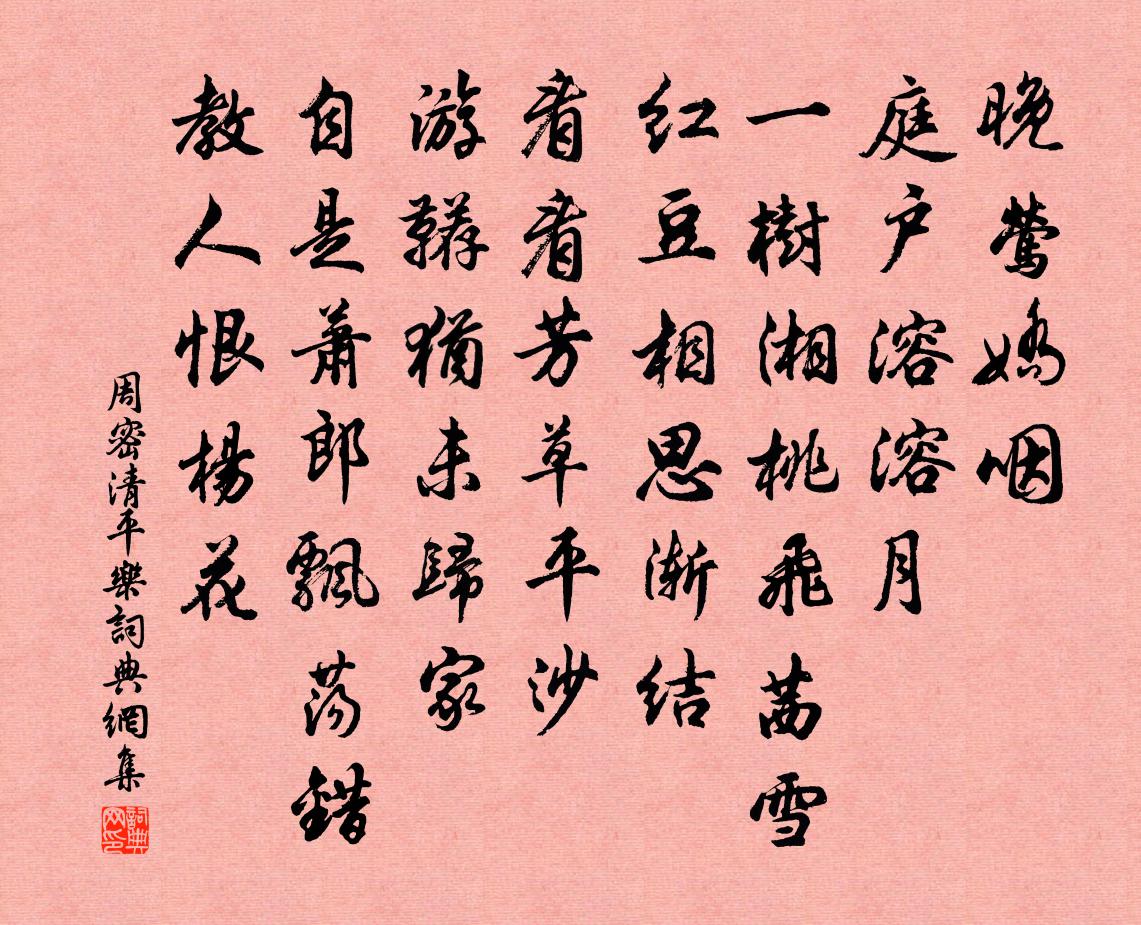 晚鶯嬌咽
庭户溶溶月
一樹湘桃飛茜雪
紅豆相思漸結
看看芳草平沙
游韉猶未歸家
自是蕭郎飄蕩錯
教人恨楊花
周密清平樂詞典網集
詞典網印